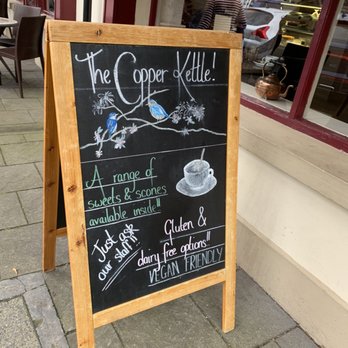 The Copper Kettle!
A range of
sweets & scones
available inside!!
Just ask
our staff!!
Gluten &
dairy free options!!
VEGAN FRIENDLY